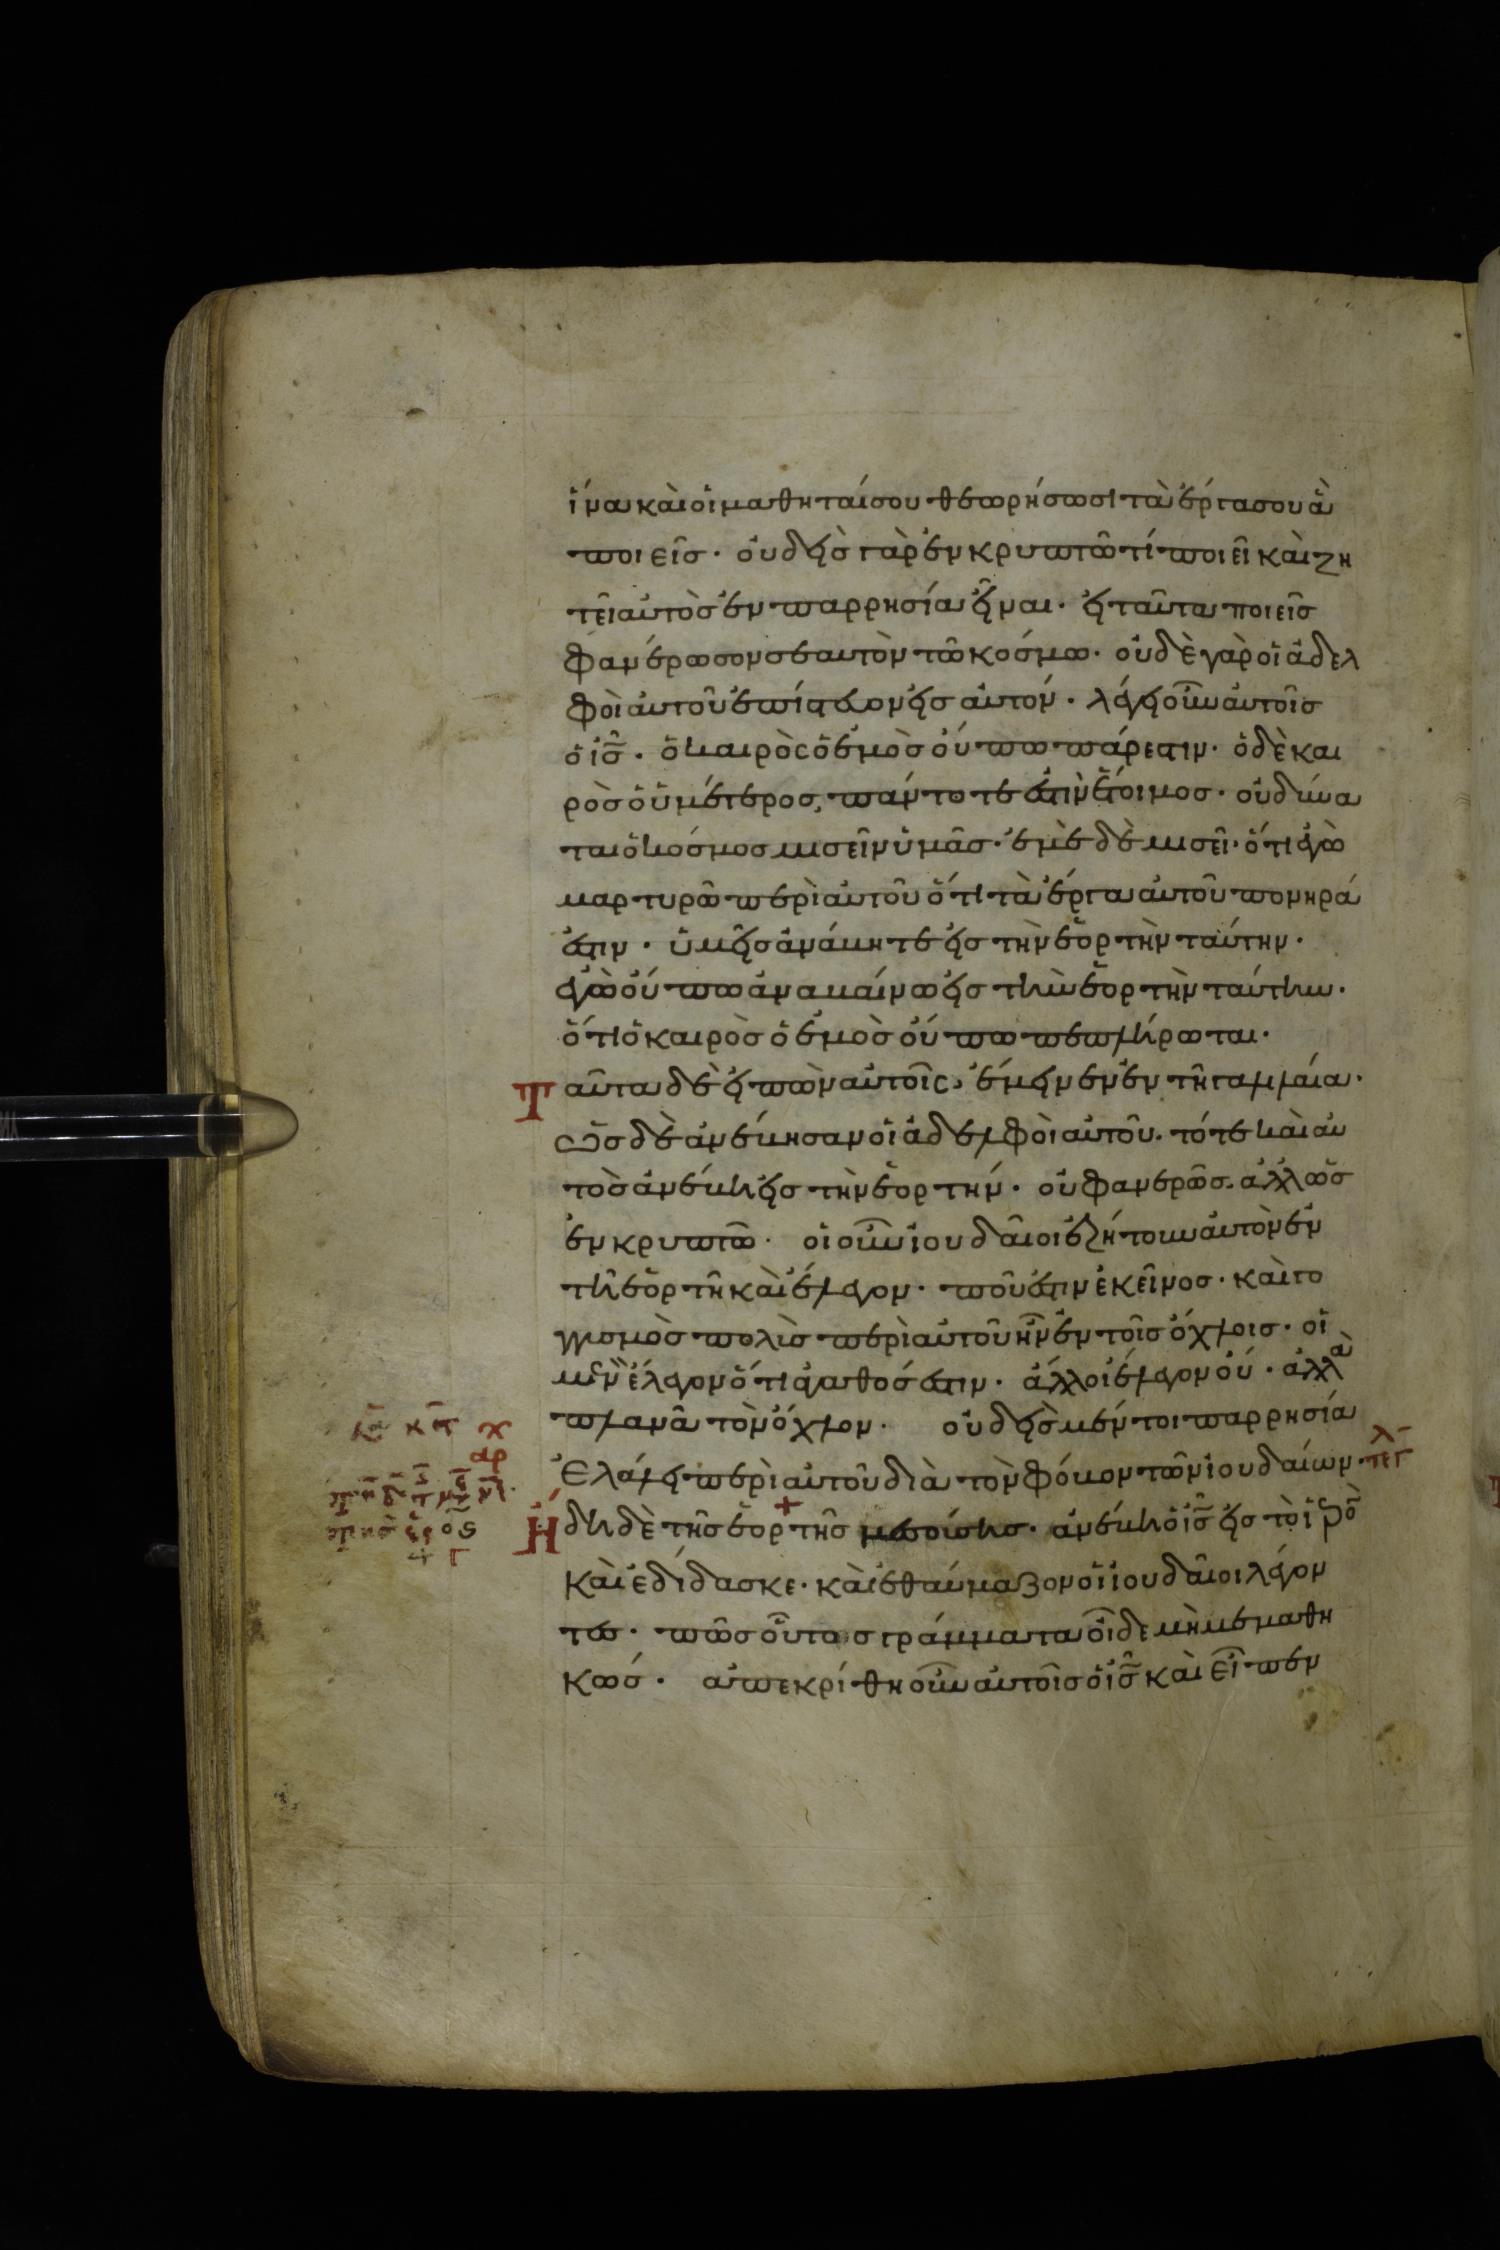 ἵνα καὶ οἱ μαθηταί σου θεωρήσωσι τὰ ἔργα σου ἃ
ποιεῖς· οὐδεὶς γὰρ ἐν κρυπτῶ τί ποιεῖ καὶ ζη
τεῖ αὐτὸς ἐν παρρησία εἶναι· εἰ ταῦτα ποιεῖς
φανέρωσον σεαυτὸν τῶ κόσμω· οὐδὲ γὰρ οἱ ἀδελ
φοὶ αὐτοῦ ἐπίστευον εἰς αὐτόν· λέγει οὖν αὐτοῖς
ὁ ἰς̅· ὁ καιρὸς ὁ ἐμὸς οὔπω πάρεστιν· ὁ δὲ και
ρὸς ὁ ὑμέτερος, πάντοτε ἐστὶν ἕτοιμος· οὐ δύνα
ται ὁ κόσμος μισεῖν ὑμᾶς· ἐμὲ δὲ μισεῖ· ὅτι ἐγὼ
μαρτυρῶ περὶ αὐτοῦ ὅτι τὰ ἔργα αὐτοῦ πονηρά
ἐστιν· ὑμεῖς ἀνάβητε εἰς τὴν ἑορτὴν ταύτην·
ἐγὼ οὔπω ἀναβαίνω εἰς τὴν ἑορτὴν ταύτην·
ὅτι ὁ καιρὸς ὁ ἐμὸς οὔπω πεπλήρωται·
Ταῦτα δὲ εἰπὼν αὐτοῖς· ἔμεινεν ἐν τῆ γαλιλαία·
ὡς δὲ ἀνέβησαν οἱ ἀδελφοὶ αὐτοῦ· τότε καὶ αὐ
τὸς ἀνέβη εἰς τὴν ἑορτήν· οὐ φανερῶς· ἀλλ ὡς
ἐν κρυπτῶ· οἱ οὖν ἰουδαῖοι ἐζήτουν αὐτὸν ἐν
τῆ ἑορτῆ καὶ ἔλεγον· ποῦ ἐστιν ἐκεῖνος· καὶ γο
γγυσμὸς πολὺς περὶ αὐτοῦ ἦν ἐν τοῖς ὄχλοις· οἱ
μὲν ἔλεγον ὅτι ἀγαθός ἐστιν· ἄλλοι ἔλεγον οὔ· ἀλλὰ
πλανᾶ τὸν ὄχλον· οὐδεὶς μέντοι παρρησία
ἐλάλει περὶ αὐτοῦ διὰ τὸν φόβον τῶν ἰουδαίων·
Ἤδη δὲ τῆς ἑορτῆς μεσούσης· ἀνέβη ὁ ἰς̅ εἰς τὸ ἱερὸ
καὶ ἐδίδασκε· καὶ ἐθαύμαζον οἱ ἰουδαῖοι λέγον
τες· πῶς οὗτος γράμματα οἶδε μὴ μεμαθη
κώς· ἀπεκρίθη οὖν αὐτοῖς ὁ ἰς̅ καὶ εἶπεν